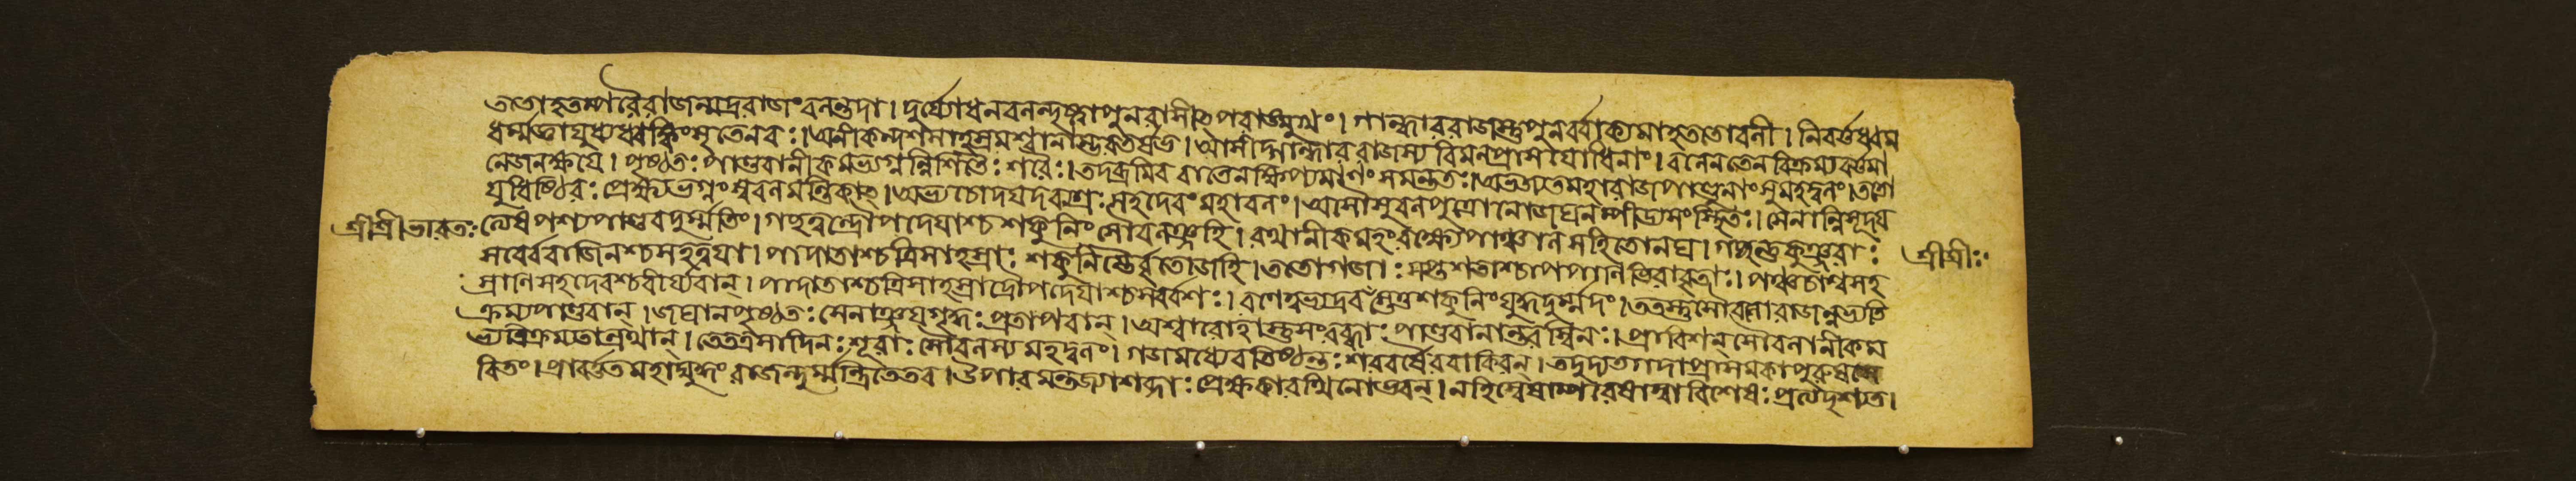 ততো হতম্পরৈ রাজন্মদ্ররাজং বলন্তদা । দুর্য্যোধনবলন্দৃষ্ট্বা পুনরাসীৎ পরাঙ্মুখং । গান্ধাররাজস্তু পুনর্ব্বাক্যমাহ ততো বলী । নিবর্ত্তধ্বম
ধর্ম্মজ্ঞা যুধ্যধ্বং কিং সৃতেন বঃ । অনীকন্দশসাহস্রমশ্বানাম্ভরতর্ষভ । আসীদ্গান্ধাররাজস্য বিমলপ্রাসযোধিনাং । বলেন তেন বিক্রম্য বর্ত্তমা
নে জনক্ষয়ে । পৃষ্ঠতঃ পাণ্ডবানীকমভ্যঘ্নন্নিশিতৈঃ শরৈঃ । তদভ্রমিব বাতেন ক্ষিপ্যমাণং সমন্ততঃ । অভজ্যত মহারাজ পাণ্ডূনাং সুমহদ্বলং । ততো
যুধিষ্ঠিরঃ প্রেক্ষ্য ভগ্নং স্ববলমন্তিকাৎ । অভ্যচোদয়দব্যগ্রঃ সহদেবং মহাবলং । অসৌ সুবলপুত্রো নো জঘনম্পীড্য সংস্থিতঃ । সেনান্নিসূদয়
শ্রীশ্রীভারতঃ
ত্যেষ পশ্য পাণ্ডব দুর্ম্মতিং । গচ্ছ ত্বন্দ্রৌপদেয়াশ্চ শকুনিং সৌবলঞ্জহি । রথানীকমহং রক্ষ্যে পাঞ্চালসহিতোনঘ । গচ্ছন্তু কুঞ্জরাঃ
শ্রীশ্রীঃ
সর্ব্বে বাজিনশ্চ সহ ত্বয়া । পাদাতাশ্চ ত্রিসাহস্রাঃ শকুনিন্তৈর্ব্বৃতো জহি । ততো গজাঃ সপ্তশতাশ্চাপপাণিভিরাবৃতাঃ । পঞ্চ চাশ্বসহ
স্রাণি সহদেবশ্চ বীর্য্যবান্ । পাদাতাশ্চ ত্রিসাহস্রা দ্রৌপদেয়াশ্চ সর্ব্বশঃ । রণে হ্যভ্যদ্রবংস্তে তু শকুনিং যুদ্ধদুর্ম্মদং । ততস্তু সৌবলো রাজন্নভ্যতি
ক্রম্য পাণ্ডবান্ । জঘান পৃষ্ঠতঃ সেনাঞ্জয়গৃদ্ধঃ প্রতাপবান্ । অশ্বারোহাস্তু সংরব্ধাঃ পাণ্ডবানান্তরস্বিনঃ । প্রাবিশন্ সৌবলানীকম
ভ্যতিক্রম্য তান্রথান্ । তে তত্র সাদিনঃ শূরাঃ সৌবলস্য মহদ্বলং । গজমধ্যেবতিষ্ঠন্তঃ শরবর্ষৈরবাকিরন্ । তদুদ্যতগদাপ্রাসমকাপুরুষসে
বিতং । প্রাবর্ত্তত মহাযুদ্ধং রাজন্দুর্ম্মন্ত্রিতে তব । উপারমন্ত জ্যাশব্দাঃ প্রেক্ষকা রথিনোভবন্ । নহি স্বেষাম্পরেষাম্বা বিশেষঃ প্রত্যদৃশ্যত ।